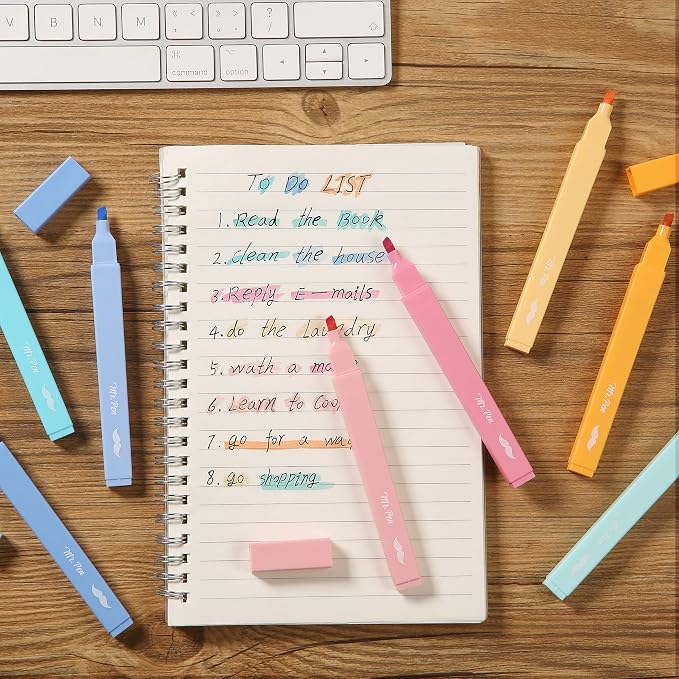 V B N M < , > . ? /
command option
TO DO LIST
1. Read the Book
2. clean the house
3. Reply E-mails
4. do the Laundry
5. wath a mo
6. Learn to Coo
7. go for a wa
8. go shopping
Mr. Pen
Mr. Pen
Mr. Pen
Mr. Pen
Mr. Pen
Mr. Pen
Mr. Pen